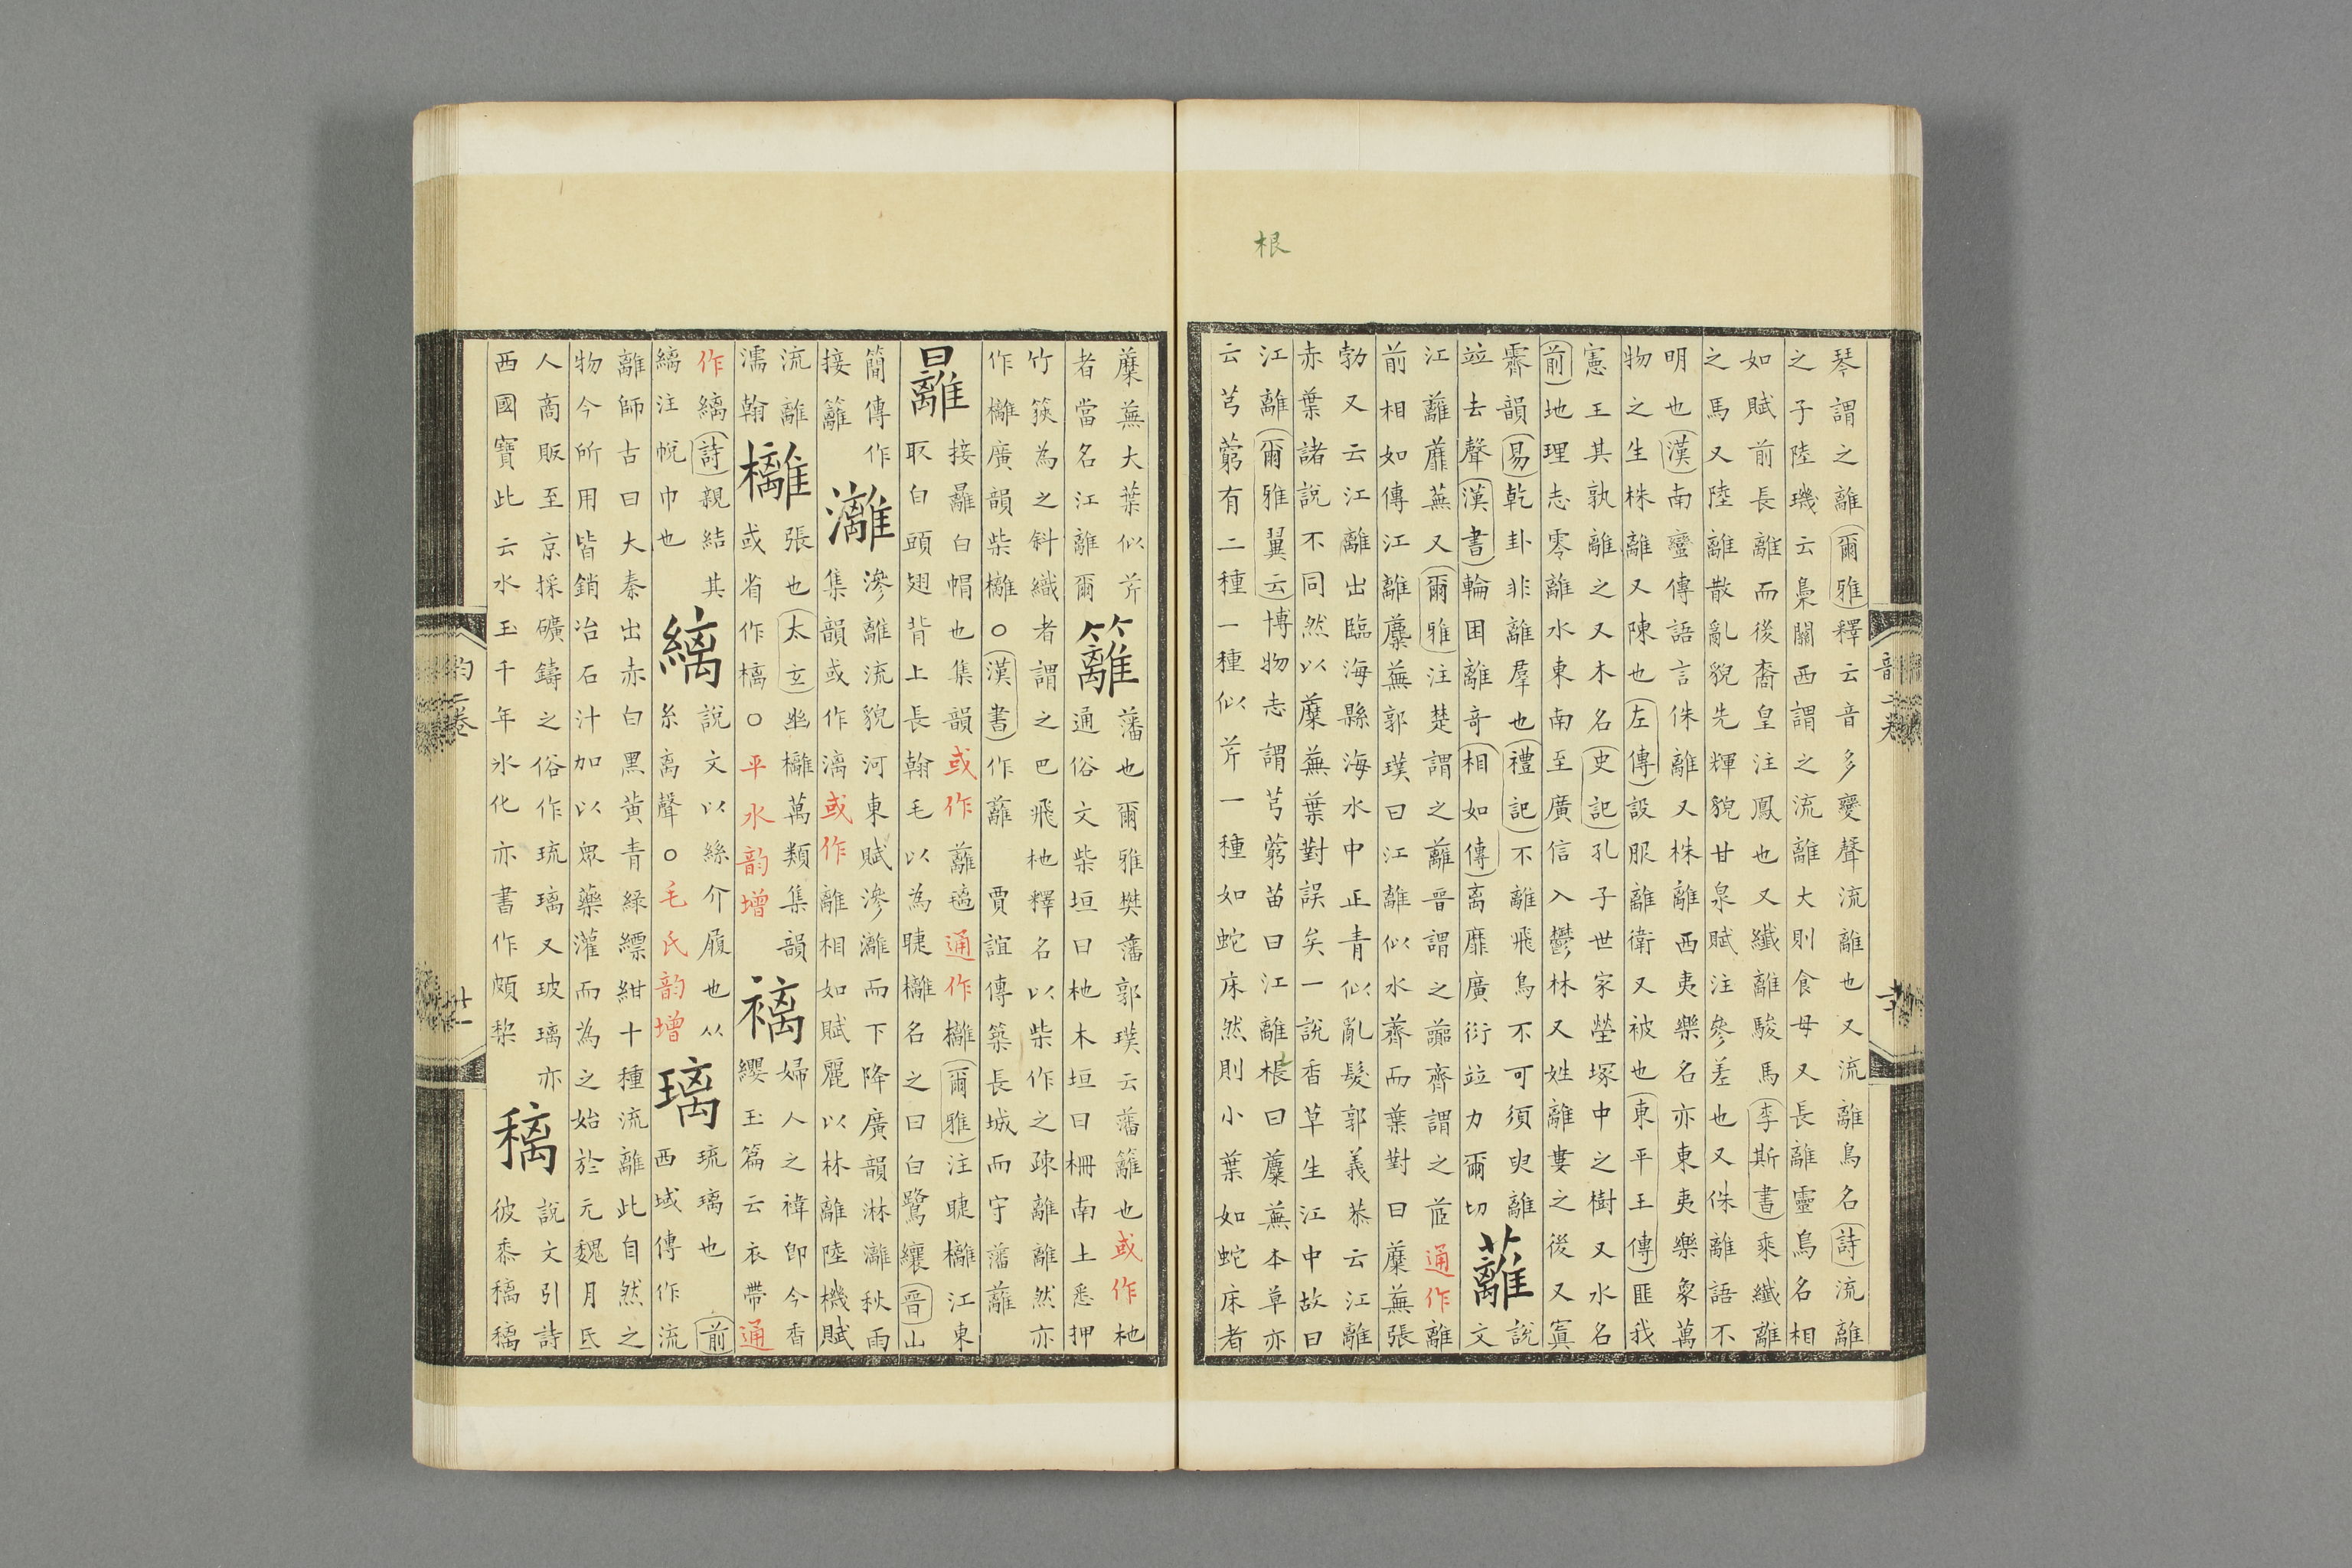 根
琴謂之離爾雅釋云音多變聲流離也又流離鳥名詩流離
之子陸璣云梟關西謂之流離大則食母又長離靈鳥名相
如賦前長離而後矞皇注鳳也又纖離駿馬李斯書乘纖離
之馬又陸離散亂貌先輝貌甘泉賦注參差也又侏離語不
明也漢南蠻傳語言侏離又株離西夷樂名亦東夷樂衆萬
物之生株離又陳也左傳設服離衛又被也東平王傳匪我
憲王其孰離之又木名史記孔子世家塋塚中之樹又水名
前地理志零離水東南至廣信入鬱林又姓離婁之後又寘
霽韻易乾卦非離羣也禮記不離飛鳥不可須臾離
竝去聲漢書輪囷離奇相如傳离靡廣衍竝力爾切
蘺
說
文
江蘺蘼蕪又爾雅注楚謂之蘺晉謂之虈齊謂之茝通作離
前相如傳江離蘪蕪郭璞曰江離似水薺而葉對曰蘪蕪張
勃又云江離出臨海縣海水中正青似亂髮郭義恭云江離
赤葉諸說不同然以蘪蕪葉對誤矣一說香草生江中故曰
江離爾雅翼云博物志謂芎藭苗曰江離根曰蘪蕪本草亦
云芎藭有二種一種似芹一種如蛇床然則小葉如蛇床者
韻二卷
二十
蘪蕪大葉似芹
者當名江離爾
籬
藩也爾雅樊藩郭璞云藩籬也或作杝
通俗文柴垣曰杝木垣曰柵南土悉押
竹篊為之斜織者謂之巴飛杝釋名以柴作之疎離離然亦
作㰚廣韻柴㰚○漢書作蘺賈誼傳築長城而守藩蘺
䍦
接䍦白帽也集韻或作蘺䍠通作㰚爾雅注睫㰚江東
取白頭翅背上長翰毛以為睫㰚名之曰白鷺縗晉山
簡傳作
接籬
灕
滲離流貌河東賦滲灕而下降廣韻淋灕秋雨
集韻或作漓或作離相如賦麗以林離陸機賦
流離
濡翰
㰚
張也太玄幽㰚萬類集韻
或省作樆○平水韵增
褵
婦人之褘即今香
纓玉篇云衣帶通
作縭詩親結其
縭注帨巾也
縭
說文以絲介履也从
糸离聲○毛氏韵增
璃
琉璃也前
西域傳作流
離師古曰大秦出赤白黑黃青綠縹紺十種流離此自然之
物今所用皆銷冶石汁加以眾藥灌而為之始於元魏月氐
人商販至京採礦鑄之俗作琉璃又玻璃亦
西國寶此云水玉千年氷化亦書作頗棃
䅻
說文引詩
彼黍䅻䅻
韵二卷
廿一